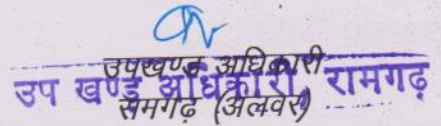 उपखण्ड अधिकारी
उप खण्ड अधिकारी, रामगढ़
रामगढ़ (अलवर)